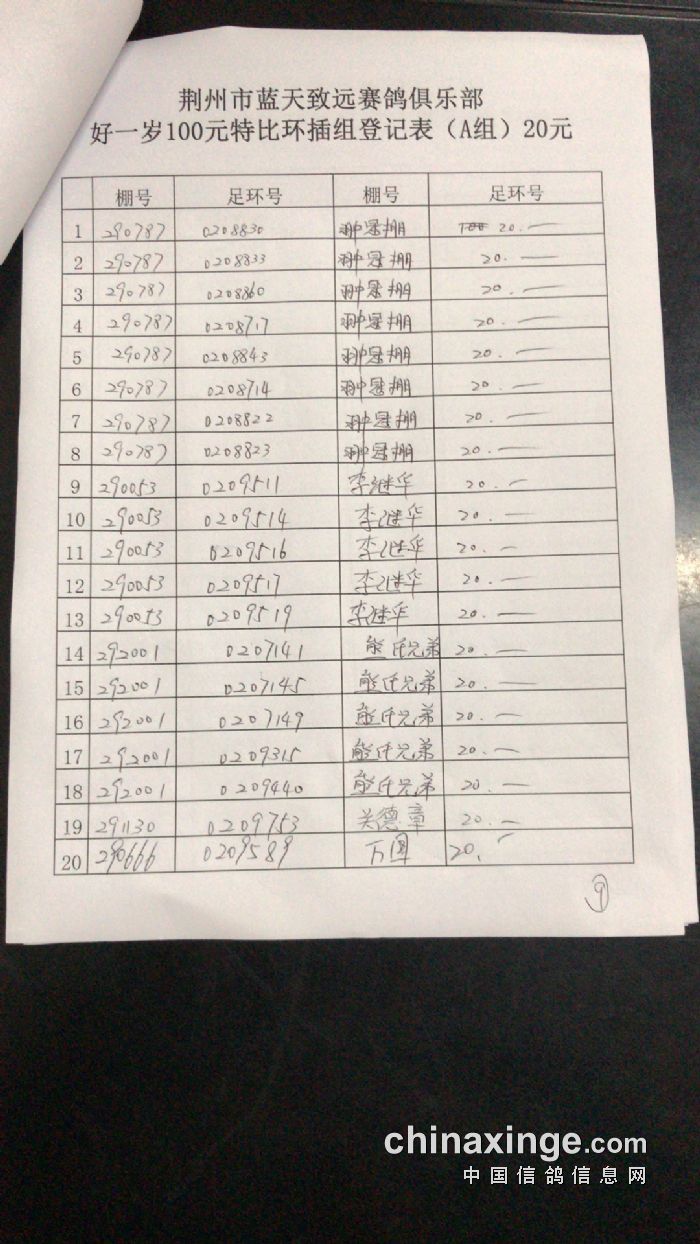 荆州市蓝天致远赛鸽俱乐部
好一岁100元特比环插组登记表（A组）20元
棚号 足环号 棚号 足环号
1 290787 0208830 翀冠棚 100 20.—
2 290787 0208833 翀冠棚 20.—
3 290787 0208860 翀冠棚 20.—
4 290787 0208717 翀冠棚 20.—
5 290787 0208843 翀冠棚 20.—
6 290787 0208714 翀冠棚 20.—
7 290787 0208822 翀冠棚 20.—
8 290787 0208823 翀冠棚 20.—
9 290053 0209511 李继华 20.—
10 290053 0209514 李继华 20.—
11 290053 0209516 李继华 20.—
12 290053 0209517 李继华 20.—
13 290053 0209519 李继华 20.—
14 292001 0207141 熊氏兄弟 20.—
15 292001 0207145 熊氏兄弟 20.—
16 292001 0207149 熊氏兄弟 20.—
17 292001 0209315 熊氏兄弟 20.—
18 292001 0209440 熊氏兄弟 20.—
19 291130 0209753 关德章 20.—
20 290666 0209589 万 20.—
9
chinaxinge.com
中国信鸽信息网